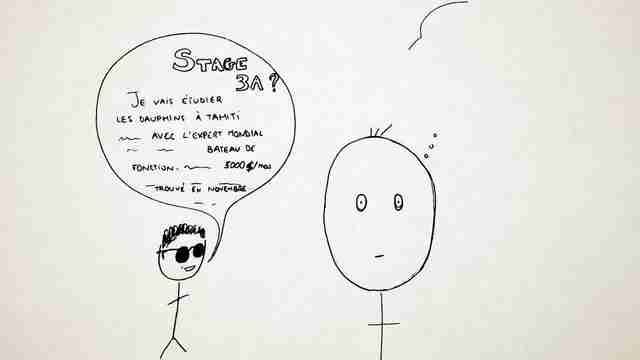 STAGE
3A ?
JE VAIS ÉTUDIER
LES DAUPHINS À TAHITI
AVEC L'EXPERT MONDIAL
BATEAU DE
FONCTION.
5000 $/MOIS
TROUVÉ EN NOVEMBRE